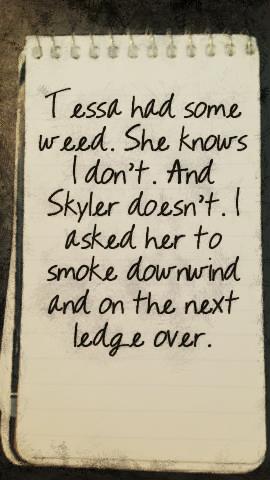 Tessa had some
weed. She knows
I don't. And
Skyler doesn't. I
asked her to
smoke downwind
and on the next
ledge over.